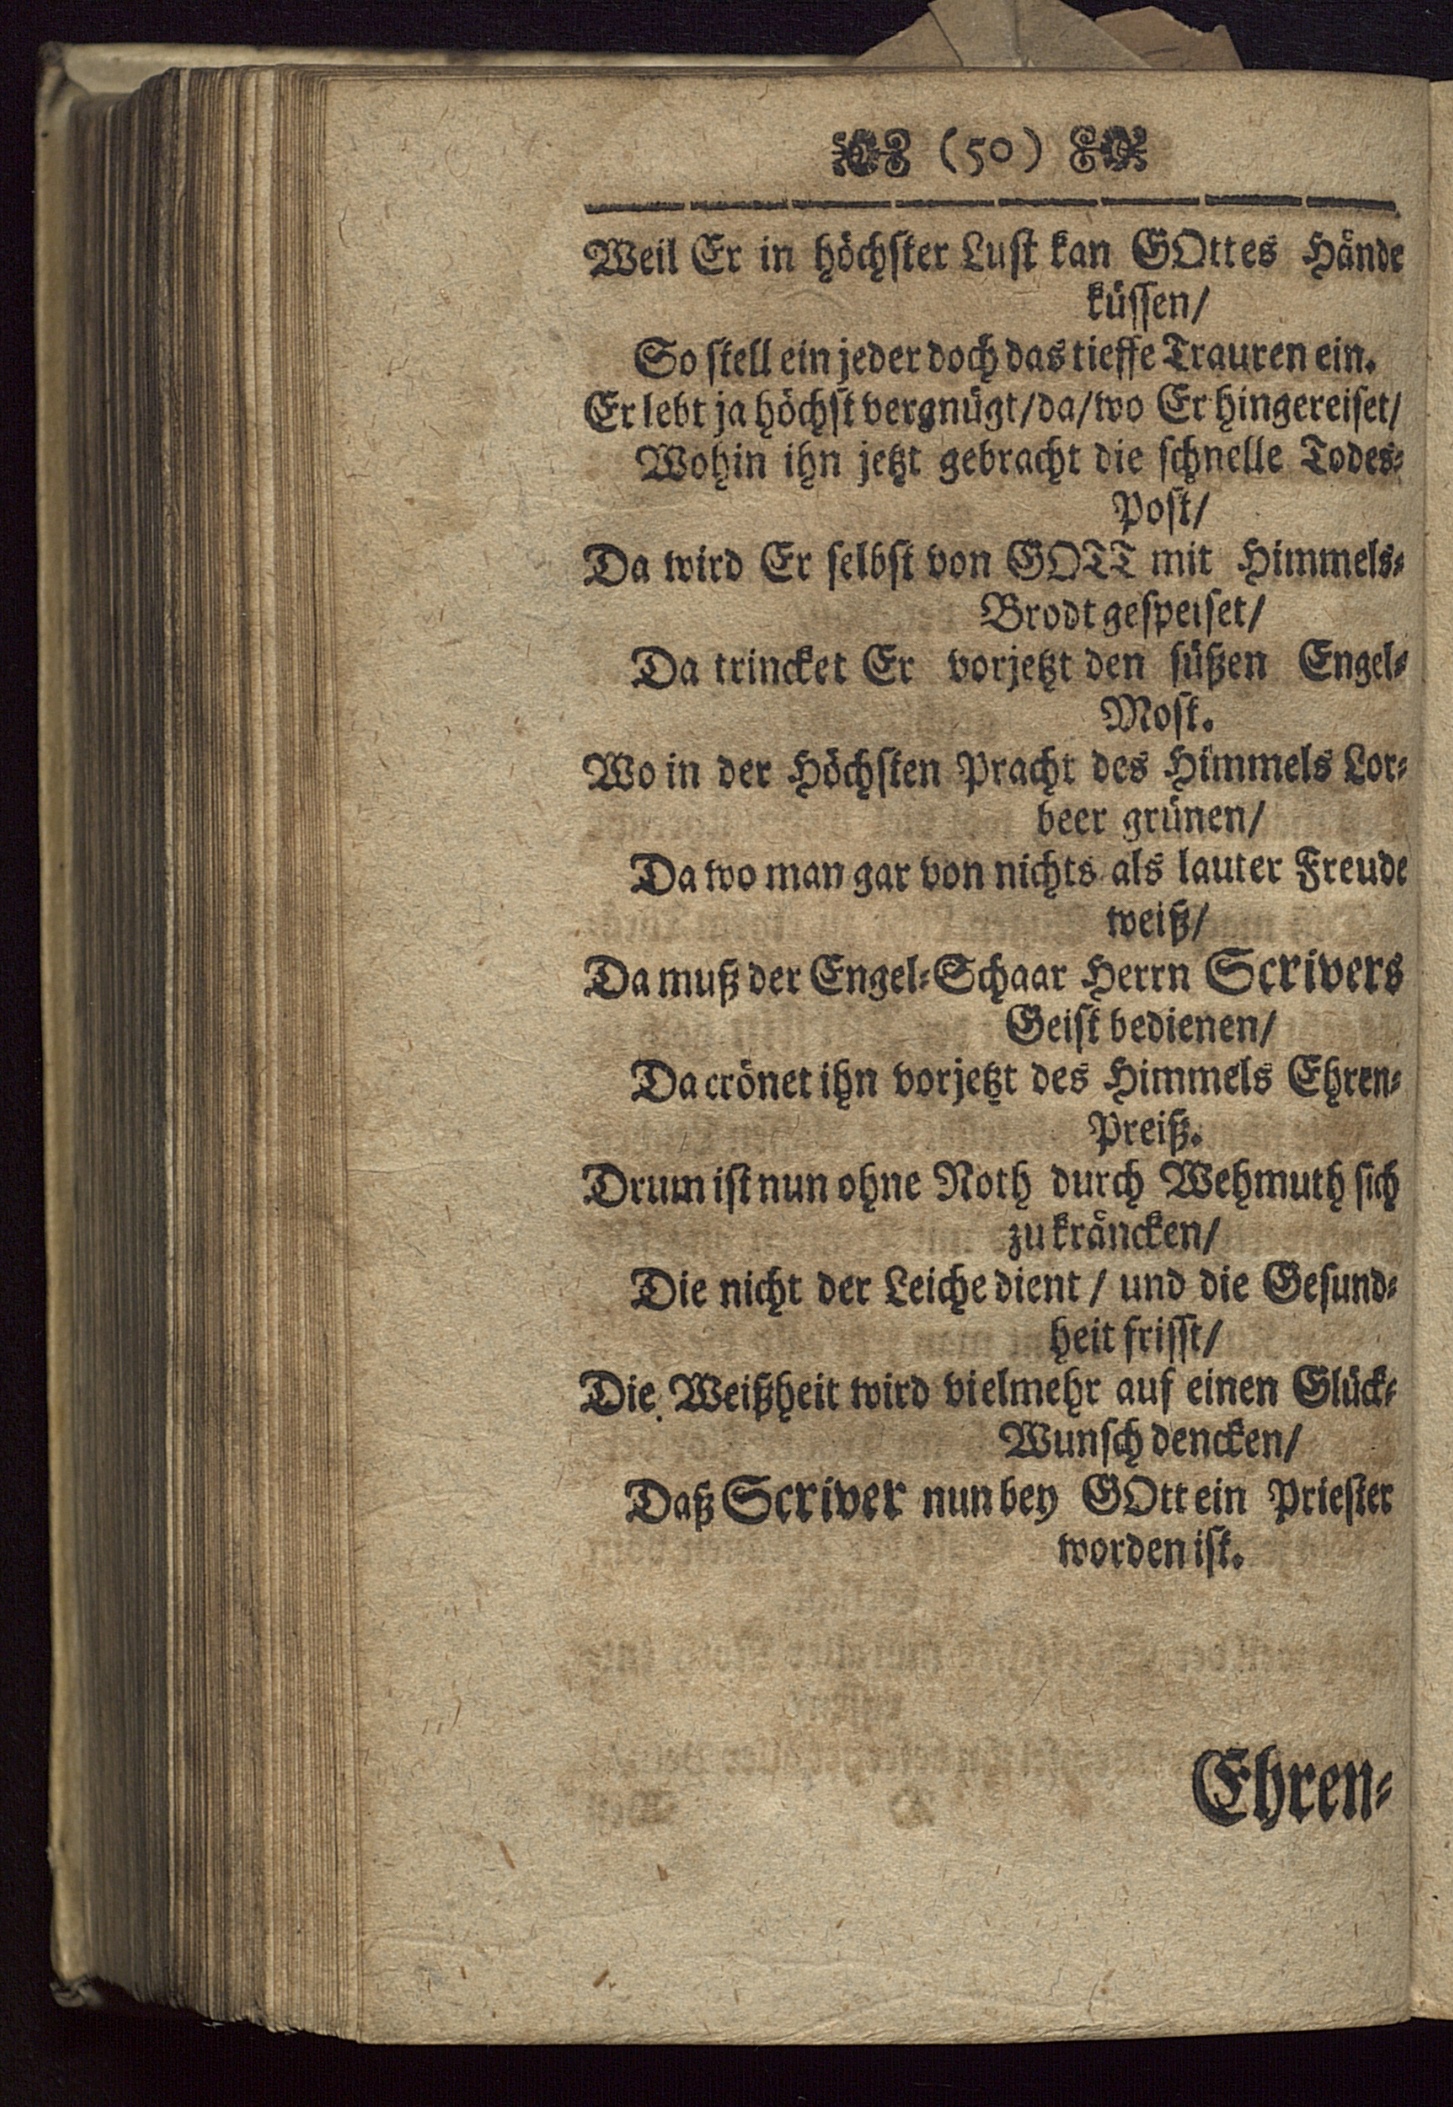 (50)
Weil Er in höchster Lust kan GOttes Hände
küssen/
So stell ein jeder doch das tieffe Trauren ein.
Er lebt ja höchst vergnügt/da/wo Er hingereiset/
Wohin ihn jetzt gebracht die schnelle Todes-
Post/
Da wird Er selbst von GOTT mit Himmels-
Brodt gespeiset/
Da trincket Er vorjetzt den süßen Engel-
Most.
Wo in der Höchsten Pracht des Himmels Lor-
beer grünen/
Da wo man gar von nichts als lauter Freude
weiß/
Da muß der Engel-Schaar Herrn Scrivers
Geist bedienen/
Da crönet ihn vorjetzt des Himmels Ehren-
Preiß.
Drum ist nun ohne Noth durch Wehmuth sich
zu kräncken/
Die nicht der Leiche dient / und die Gesund-
heit frisst/
Die Weißheit wird vielmehr auf einen Glück-
Wunsch dencken/
Daß Scriver nun bey GOtt ein Priester
worden ist.
Ehren-